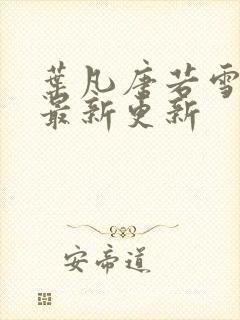 葉凡唐若雪
最新更新
安帝道